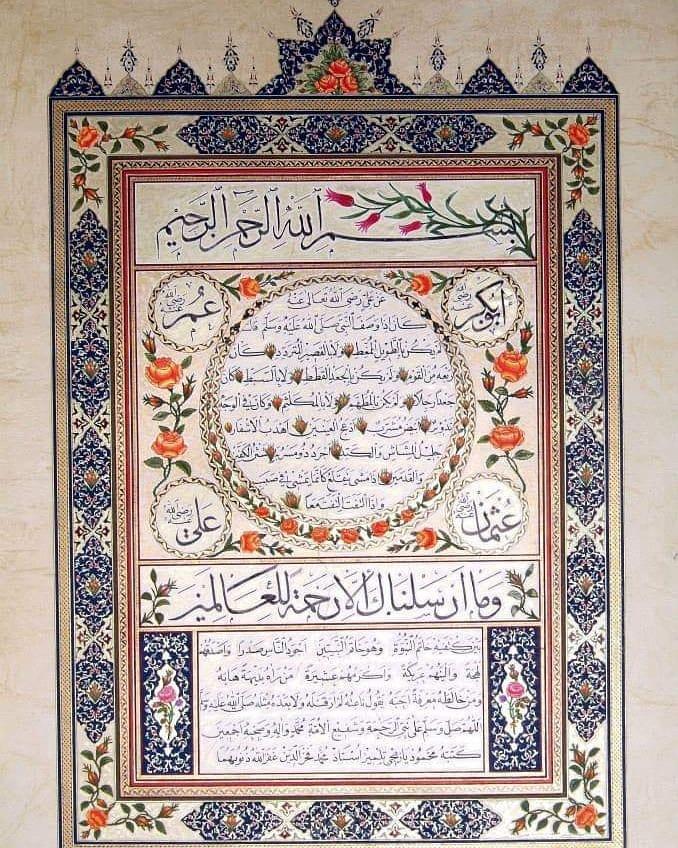 بسم الله الرحمن الرحيم
ابوبكر رضي الله عنه
عمر رضي الله عنه
عن علي رضي الله تعالى عنه
كان اذا وصف النبي صلى الله عليه وسلم قال
لم يكن بالطويل الممغط ولا بالقصير المتردد وكان
ربعة من القوم ولم يكن بالجعد القطط ولا بالسبط كان
جعدا رجلا ولم يكن بالمطهم ولا بالمكلثم وكان في الوجه
تدوير ابيض مشرب ادعج العينين اهدب الاشفار
جليل المشاش والكتد اجرد ذو مسربة شثن الكفين
والقدمين اذا مشى يتقلع كانما يمشي في صبب
واذا التفت التفت معا
عثمان رضي الله عنه
علي رضي الله عنه
وما ارسلناك الا رحمة للعالمين
بين كتفيه خاتم النبوة وهو خاتم النبيين اجود الناس صدرا واصدقهم
لهجة والينهم عريكة واكرمهم عشيرة من راه بديهة هابه
ومن خالطه معرفة احبه يقول ناعته لم ار قبله ولا بعده مثله صلى الله عليه وسلم
اللهم صل وسلم على نبي الرحمة وشفيع الامة محمد واله وصحبه اجمعين
كتبه محمود تلميذ استاذ محمد فخر الدين غفر الله ذنوبهما